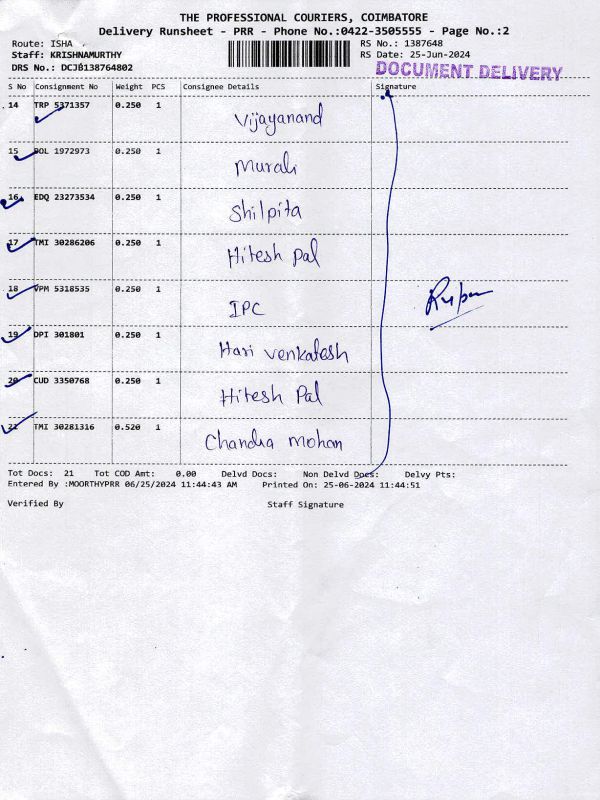 THE PROFESSIONAL COURIERS, COIMBATORE
Delivery Runsheet - PRR - Phone No.:0422-3505555 - Page No.:2
Route: ISHA
Staff: KRISHNAMURTHY
DRS No.: DCJB138764802
RS No.: 1387648
RS Date: 25-Jun-2024
DOCUMENT DELIVERY
S No Consignment No Weight PCS Consignee Details Signature
14 TRP 5371357 0.250 1 Vijayanand
15 POL 1972973 0.250 1 Murali
16 EDQ 23273534 0.250 1 Shilpita
17 TMI 30286206 0.250 1 Hitesh Pal
18 VPM 5318535 0.250 1 IPC
19 DPI 301801 0.250 1 Hari Venkatesh
20 CUD 3350768 0.250 1 Hitesh Pal
21 TMI 30281316 0.520 1 Chandra Mohan
Tot Docs: 21 Tot COD Amt: 0.00 Delvd Docs: Non Delvd Docs: Delvy Pts:
Entered By :MOORTHYPRR 06/25/2024 11:44:43 AM Printed On: 25-06-2024 11:44:51
Verified By Staff Signature